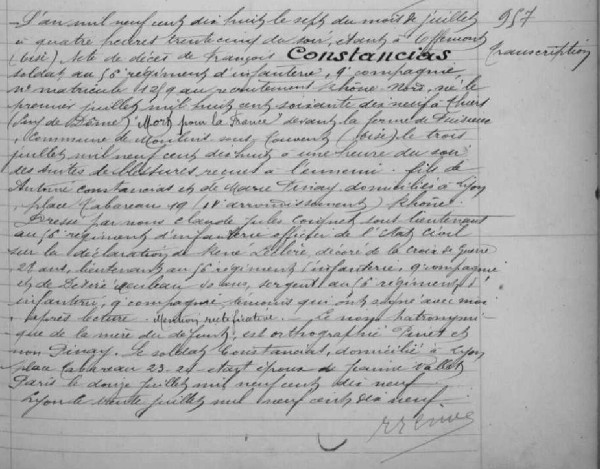 L'an mil neuf cent dix huit le sept du mois de juillet 957
à quatre heures trente cinq du soir, étant à Offémont transcription
(Oise) Acte de décès de François Constancias
soldat au 56e régiment d'infanterie, 9e compagnie
no matricule 1219 au recrutement Rhône Nord, né le
premier juillet mil huit cent soixante dix neuf à Thiers
(Puy de Dôme) "Mort pour la France" devant la ferme de Puiseux
Commune de (Oise) le trois
juillet mil neuf cent dix huit à une heure du soir
des suites de blessures reçues à l'ennemi. fils de
Antoine Constancias et de Marie Pinay domiciliés à Lyon
place Tabareau 19 (4e arrondissement) Rhône.
Dressé par nous Claude Jules sous lieutenant
au 56 régiment d'infanterie officier de l'état civil
sur la déclaration de René décoré de la croix de guerre
ans, lieutenant au 56 régiment d'infanterie, 9e compagnie
et de Désiré ans, sergent au 56 régiment d'
infanterie, 9e compagnie témoins qui ont signé avec moi
après lecture. Mention rectificative. Le nom patronymi-
que de la mère du défunt, est orthographié et
non Pinay. Le soldat Constancias, domicilié à Lyon
place Tabareau était époux de Jeanne Vallet
Paris le douze juillet mil neuf cent dix neuf
Lyon le trente juillet mil neuf cent dix neuf